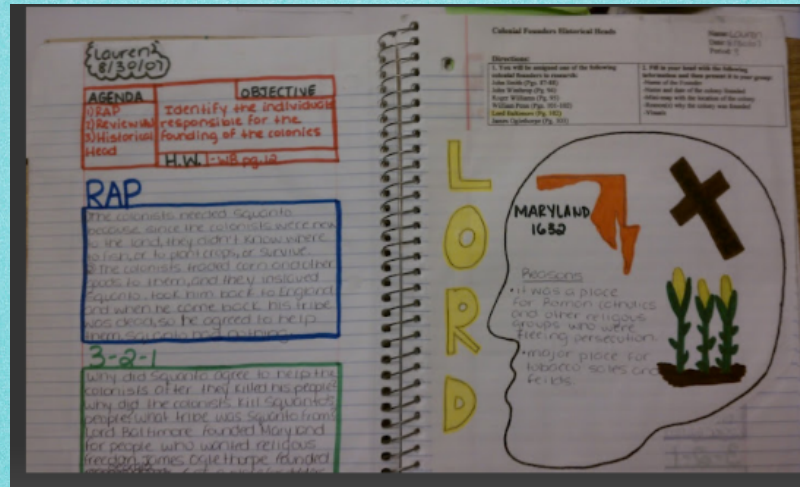 Lauren
8/30/07
AGENDA
1) RAP
3) Historical
Head
OBJECTIVE
Identify the individuals
responsible for the
founding of the colonies
H.W. - WB pg. 12
RAP
The colonists needed Squanto
because since the colonists were new
to the land, they didn't know where
to fish, or to plant crops, or survive.
The colonists traded corn and other
goods to them, and they
Squanto. took him back to England
and when he came back his tribe
was dead, so he agreed to help
them. Squanto had nothing
3-2-1
Why did Squanto agree to help the
colonists after they killed his people
why did the colonists kill Squanto's
people what tribe was Squanto from
Lord Baltimore founded Maryland
for people who wanted religious
freedom James Oglethorpe founded
Colonial Founders Historical Heads
Name: Lauren
Date:
Period:
Directions:
1. You will be assigned one of the following
colonial founders to research:
John Smith (Pgs. 87-88)
John Winthrop (Pg. 94)
Roger Williams (Pg. 95)
William Penn (Pgs. 101-102)
Lord Baltimore (Pg. 102)
James Oglethorpe (Pg. 103)
2. Fill in your head with the following
information and then present it to your group:
-Name of the Founder
-Name and date of the colony founded
-Mini-map with the location of the colony
-Reason(s) why the colony was founded
-Visuals
LORD
MARYLAND
1632
Reasons
• it was a place
for Roman Catholics
and other religous
groups who were
fleeing persecution.
• major place for
tobacco sales and
feilds.